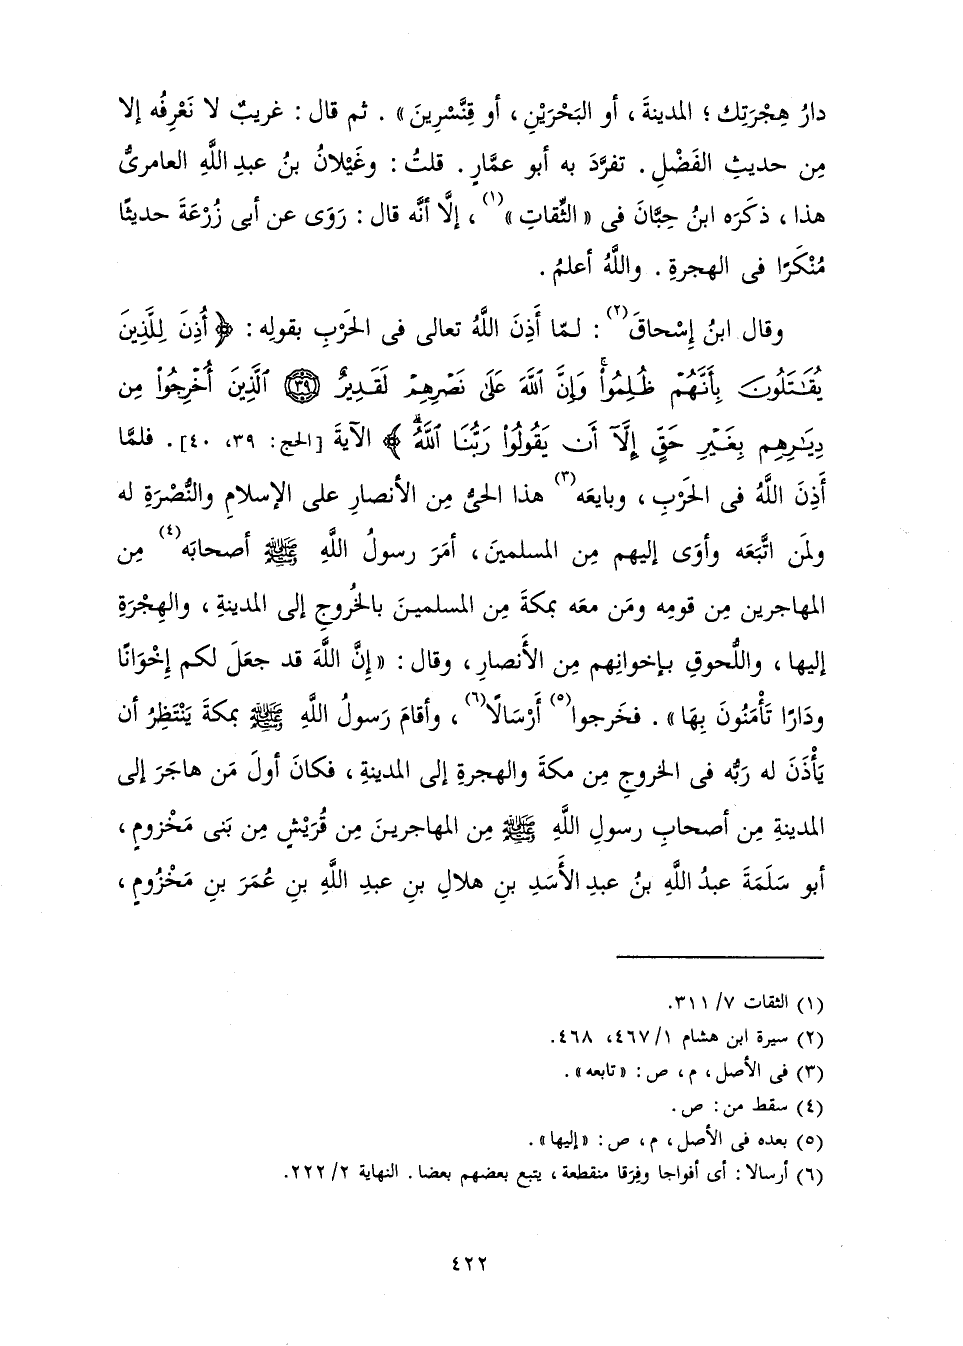 دارُ هِجْرَتِك ؛ المدينةَ ، أو البَحْرَيْنِ ، أو قِنَّسْرِينَ » . ثم قال : غريبٌ لا نَعْرِفُه إلا
مِن حديثِ الفَضْلِ . تفرَّدَ به أبو عمَّارٍ . قلتُ : وغَيْلانُ بنُ عبدِ اللَّهِ العامرىُّ
هذا ، ذكَرَه ابنُ حِبَّانَ فى « الثِّقاتِ »(١) ، إلَّا أنَّه قال : رَوَى عن أبى زُرْعَةَ حديثًا
مُنْكَرًا فى الهجرةِ . واللَّهُ أعلمُ .
وقال ابنُ إسْحاقَ(٢) : لمّا أَذِنَ اللَّهُ تعالى فى الحَرْبِ بقولِه : ﴿ أُذِنَ لِلَّذِينَ
يُقَٰتَلُونَ بِأَنَّهُمْ ظُلِمُواْۚ وَإِنَّ ٱللَّهَ عَلَىٰ نَصْرِهِمْ لَقَدِيرٌ ﴿٣٩﴾ ٱلَّذِينَ أُخْرِجُواْ مِن
دِيَٰرِهِم بِغَيْرِ حَقٍّ إِلَّآ أَن يَقُولُواْ رَبُّنَا ٱللَّهُۗ ﴾ الآيةَ [الحج: ٣٩، ٤٠] . فلمَّا
أَذِنَ اللَّهُ فى الحَرْبِ ، وبايعَه(٣) هذا الحىُّ مِن الأنصارِ على الإسلامِ والنُّصْرَةِ له
ولمَن اتَّبَعَه وأوَى إليهم مِن المسلمينَ ، أمَرَ رسولُ اللَّهِ ﷺ أصحابَه(٤) مِن
المهاجرين مِن قومِه ومَن معَه بمكةَ مِن المسلمينَ بالخُروجِ إلى المدينةِ ، والهِجْرَةِ
إليها ، واللُّحوقِ بإخوانِهم مِن الأنصارِ ، وقال : « إنَّ اللَّهَ قد جعَلَ لكم إخْوَانًا
ودَارًا تَأْمَنُونَ بِهَا » . فخَرجوا(٥) أَرْسَالًا(٦) ، وأقامَ رَسولُ اللَّهِ ﷺ بمكةَ يَنْتَظِرُ أن
يَأْذَنَ له رَبُّه فى الخروجِ مِن مكةَ والهجرةِ إلى المدينةِ ، فكانَ أولَ مَن هاجَرَ إلى
المدينةِ مِن أصحابِ رسولِ اللَّهِ ﷺ مِن المهاجرينَ مِن قُرَيْشٍ مِن بَنى مَخْزومٍ ،
أبو سَلَمَةَ عبدُ اللَّهِ بنُ عبدِ الأَسَدِ بنِ هلالِ بنِ عبدِ اللَّهِ بنِ عُمَرَ بنِ مَخْزُومٍ ،
(١) الثقات ٧/ ٣١١.
(٢) سيرة ابن هشام ١/ ٤٦٧، ٤٦٨.
(٣) فى الأصل، م، ص: «تابعه».
(٤) سقط من: ص.
(٥) بعده فى الأصل، م، ص: «إليها».
(٦) أرسالا: أى أفواجا وفِرَقا منقطعة، يتبع بعضهم بعضا. النهاية ٢/ ٢٢٢.
٤٢٢